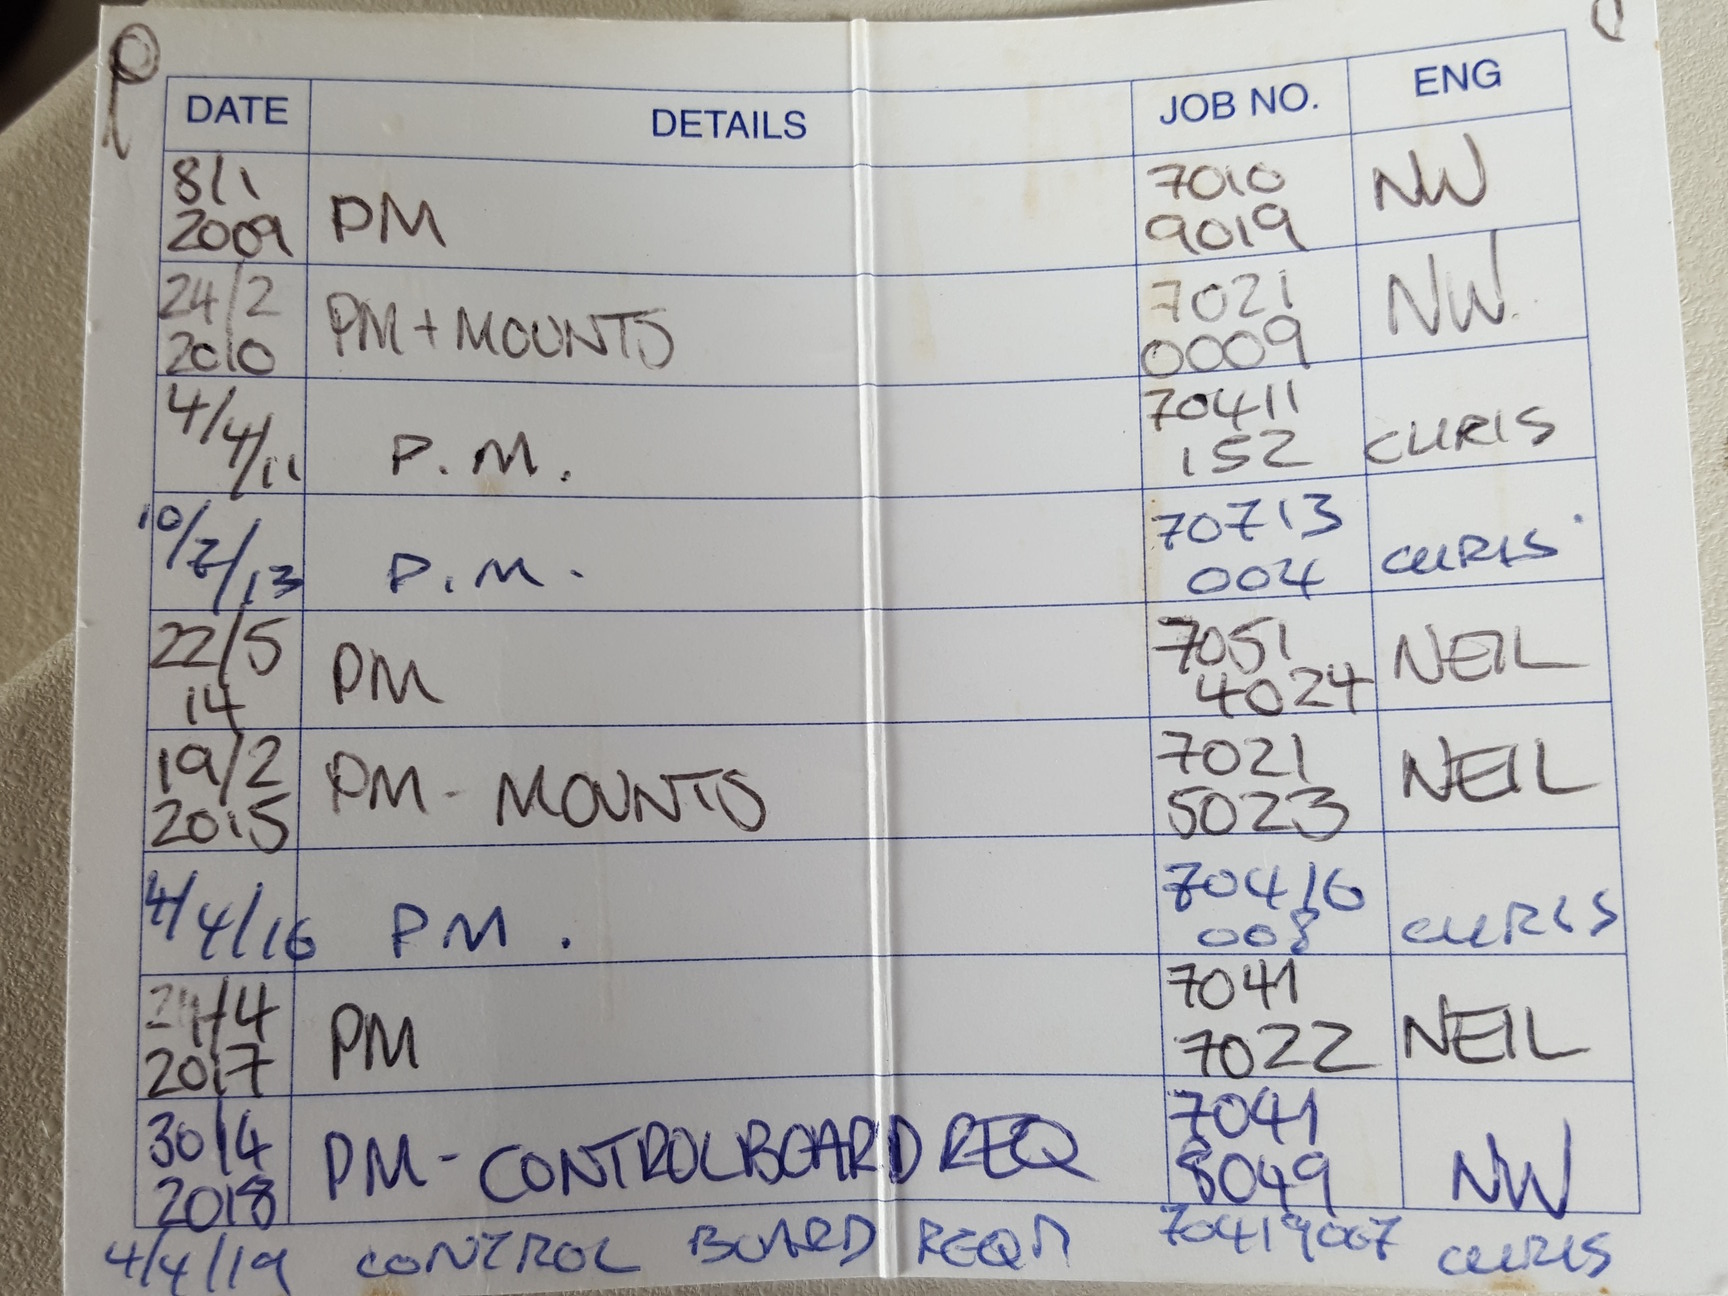 DATE DETAILS JOB NO. ENG
8/1 7010
2009 PM 9019 NW
24/2 7021
2010 PM + MOUNTS 0009 NW.
4/4/11 P.M. 70411 CHRIS
152
10/7/13 P.M. 70713 CHRIS
004
22/5 7051
14 PM 4024 NEIL
19/2 7021
2015 PM - MOUNTS 5023 NEIL
4/4/16 PM. 70416 CHRIS
008
24/4 7041
2017 PM 7022 NEIL
30/4 7041
2018 PM - CONTROL BOARD REQ 8049 NW
4/4/19 CONTROL BOARD REQD 70419007 CHRIS